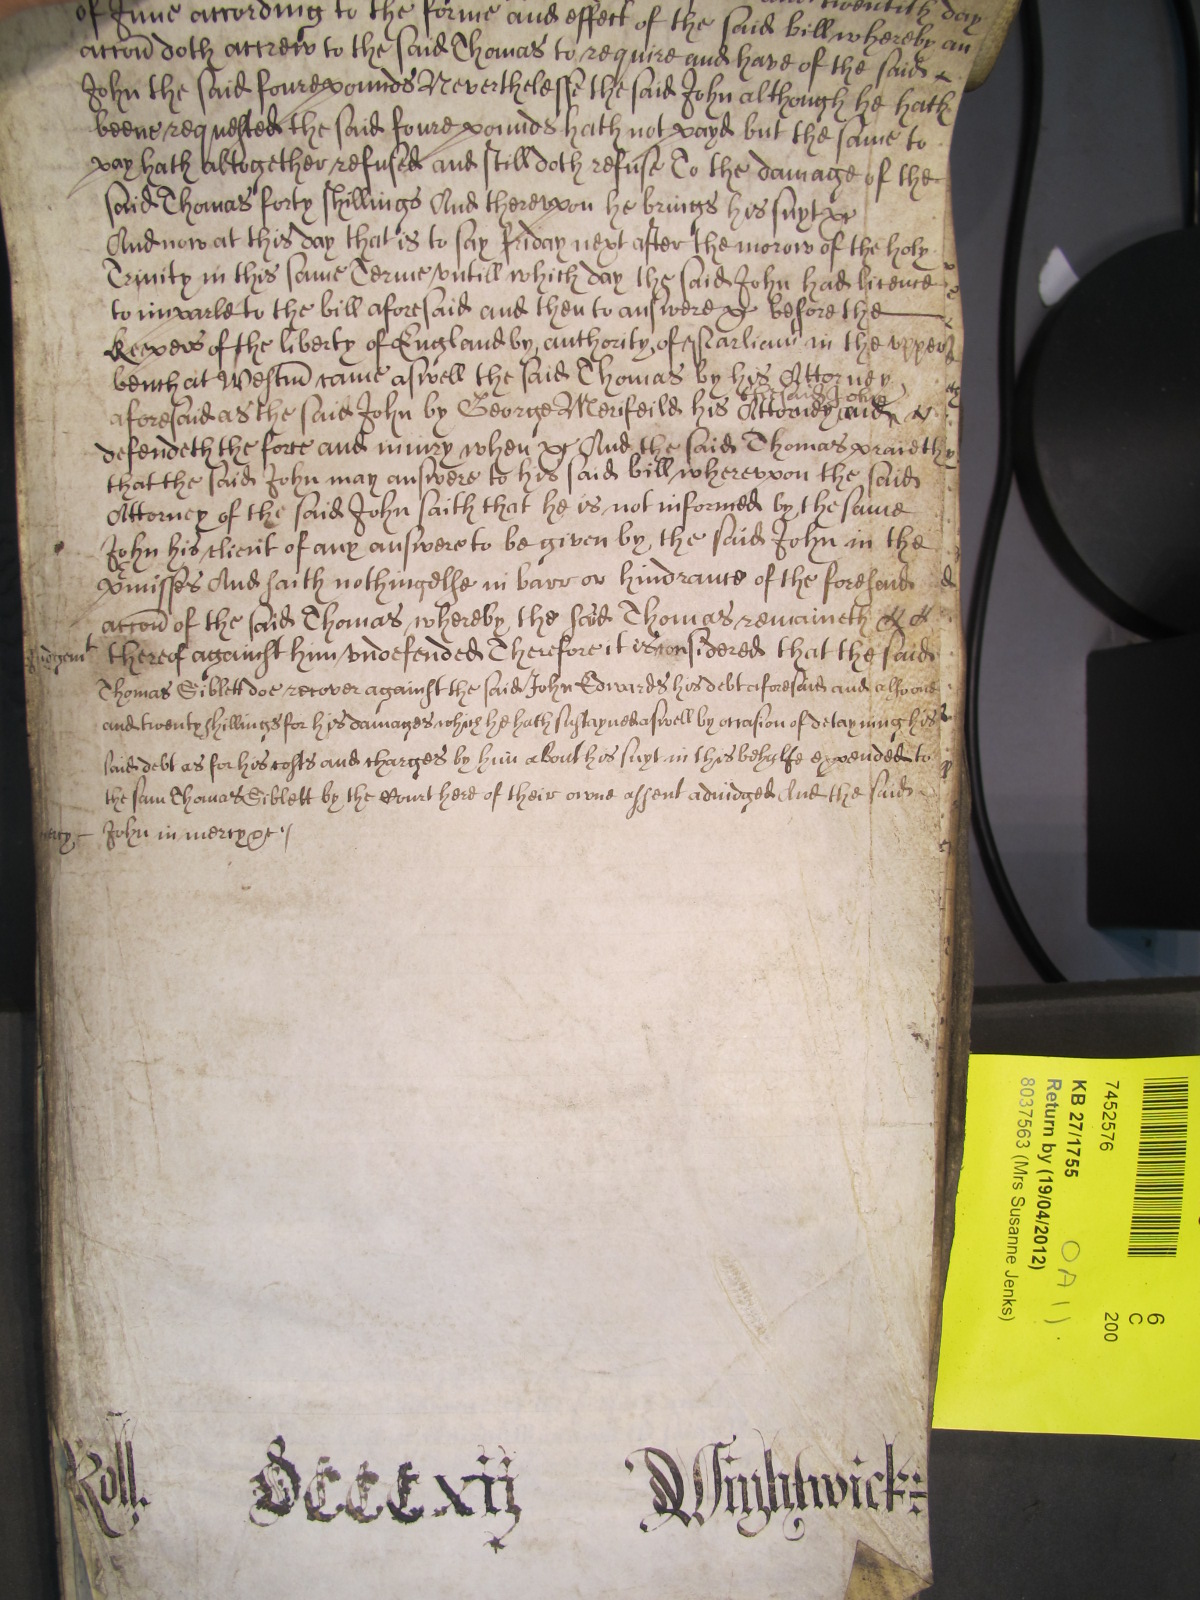 and twentith day
of June according to the forme and effect of the said bill whereby an
accōn doth accrew to the said Thomas to require and have of the said
John the said foure pounds Neverthelesse the said John although he hath
beene requested the said foure pounds hath not payd but the same to
pay hath altogether refused and still doth refuse To the damage of the
said Thomas forty shillings And therevpon he brings his suyt &c
And now at this day that is to say friday next after the morow of the holy
Trinity in this same Terme vntill which day the said John had licence
to imparle to the bill aforesaid and then to answere &c before the
Keepers of the liberty of England by authority of Parliamt in the vpper
bench at Westm̄ came aswell the said Thomas by his Attorney
the said John
aforesaid as the said John by George Merifeild his Attorney and
defendeth the force and iniury when &c And the said Thomas praieth
that the said John may answere to his said bill wherevpon the said
Attorney of the said John saith that he is not informed by the same
John his client of any answere to be given by the said John in the
p̄misses And saith nothing else in barr or hindrance of the foresaid
accōn of the said Thomas whereby the said Thomas remaineth
Judgemt
thereof against him vndefended Therefore it is considered that the said
Thomas Siblett doe recover against the said John Edwards his debt aforesaid and also one
and twenty shillings for his damages which he hath sustayned aswell by occasion of detayning his
said debt as for his costs and charges by him about his suyt in this behalfe expended to
the sam Thomas Siblett by the Court here of their owne assent adiudged And the said
mercy
John in mercy &c
Roll. DCCCCxij Wightwick
7452576
KB 27/1755
Return by (19/04/2012)
8037563 (Mrs Susanne Jenks)
6
C
200